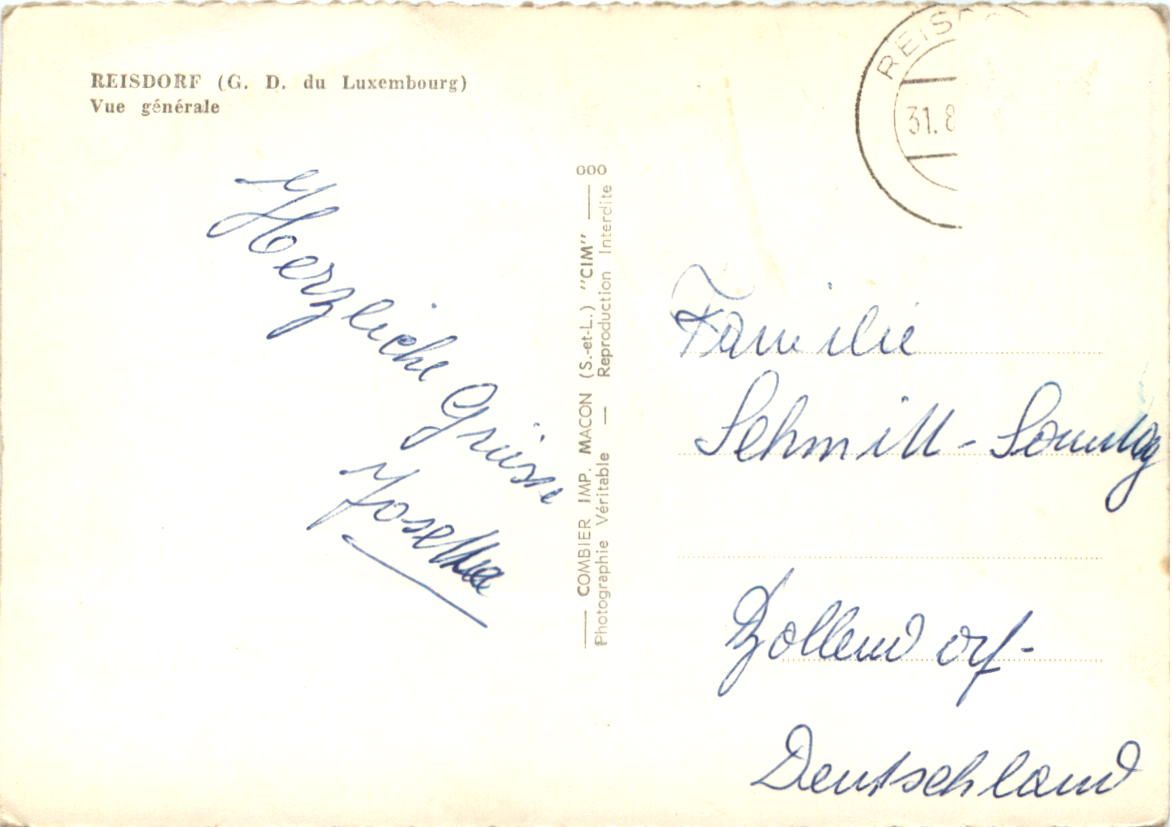 REISDORF (G. D. du Luxembourg)
Vue générale
Herzliche Grüsse
000
COMBIER IMP. MACON (S.-et-L.) "CIM"
Photographie Véritable — Reproduction Interdite
REIS
31.8
Familie
Schmitt-Sonntag
Deutschland